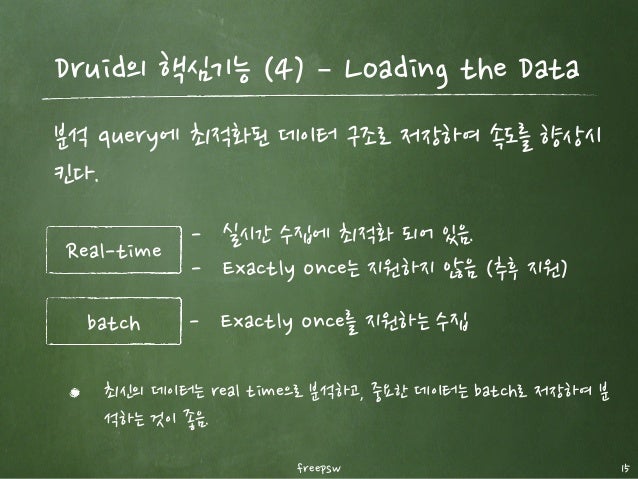 Druid의 핵심기능 (4) - Loading the Data
분석 query에 최적화된 데이터 구조로 저장하여 속도를 향상시
킨다.
Real-time
- 실시간 수집에 최적화 되어 있음.
- Exactly once는 지원하지 않음 (추후 지원)
batch
- Exactly once를 지원하는 수집
최신의 데이터는 real time으로 분석하고, 중요한 데이터는 batch로 저장하여 분
석하는 것이 좋음.
freepsw
15